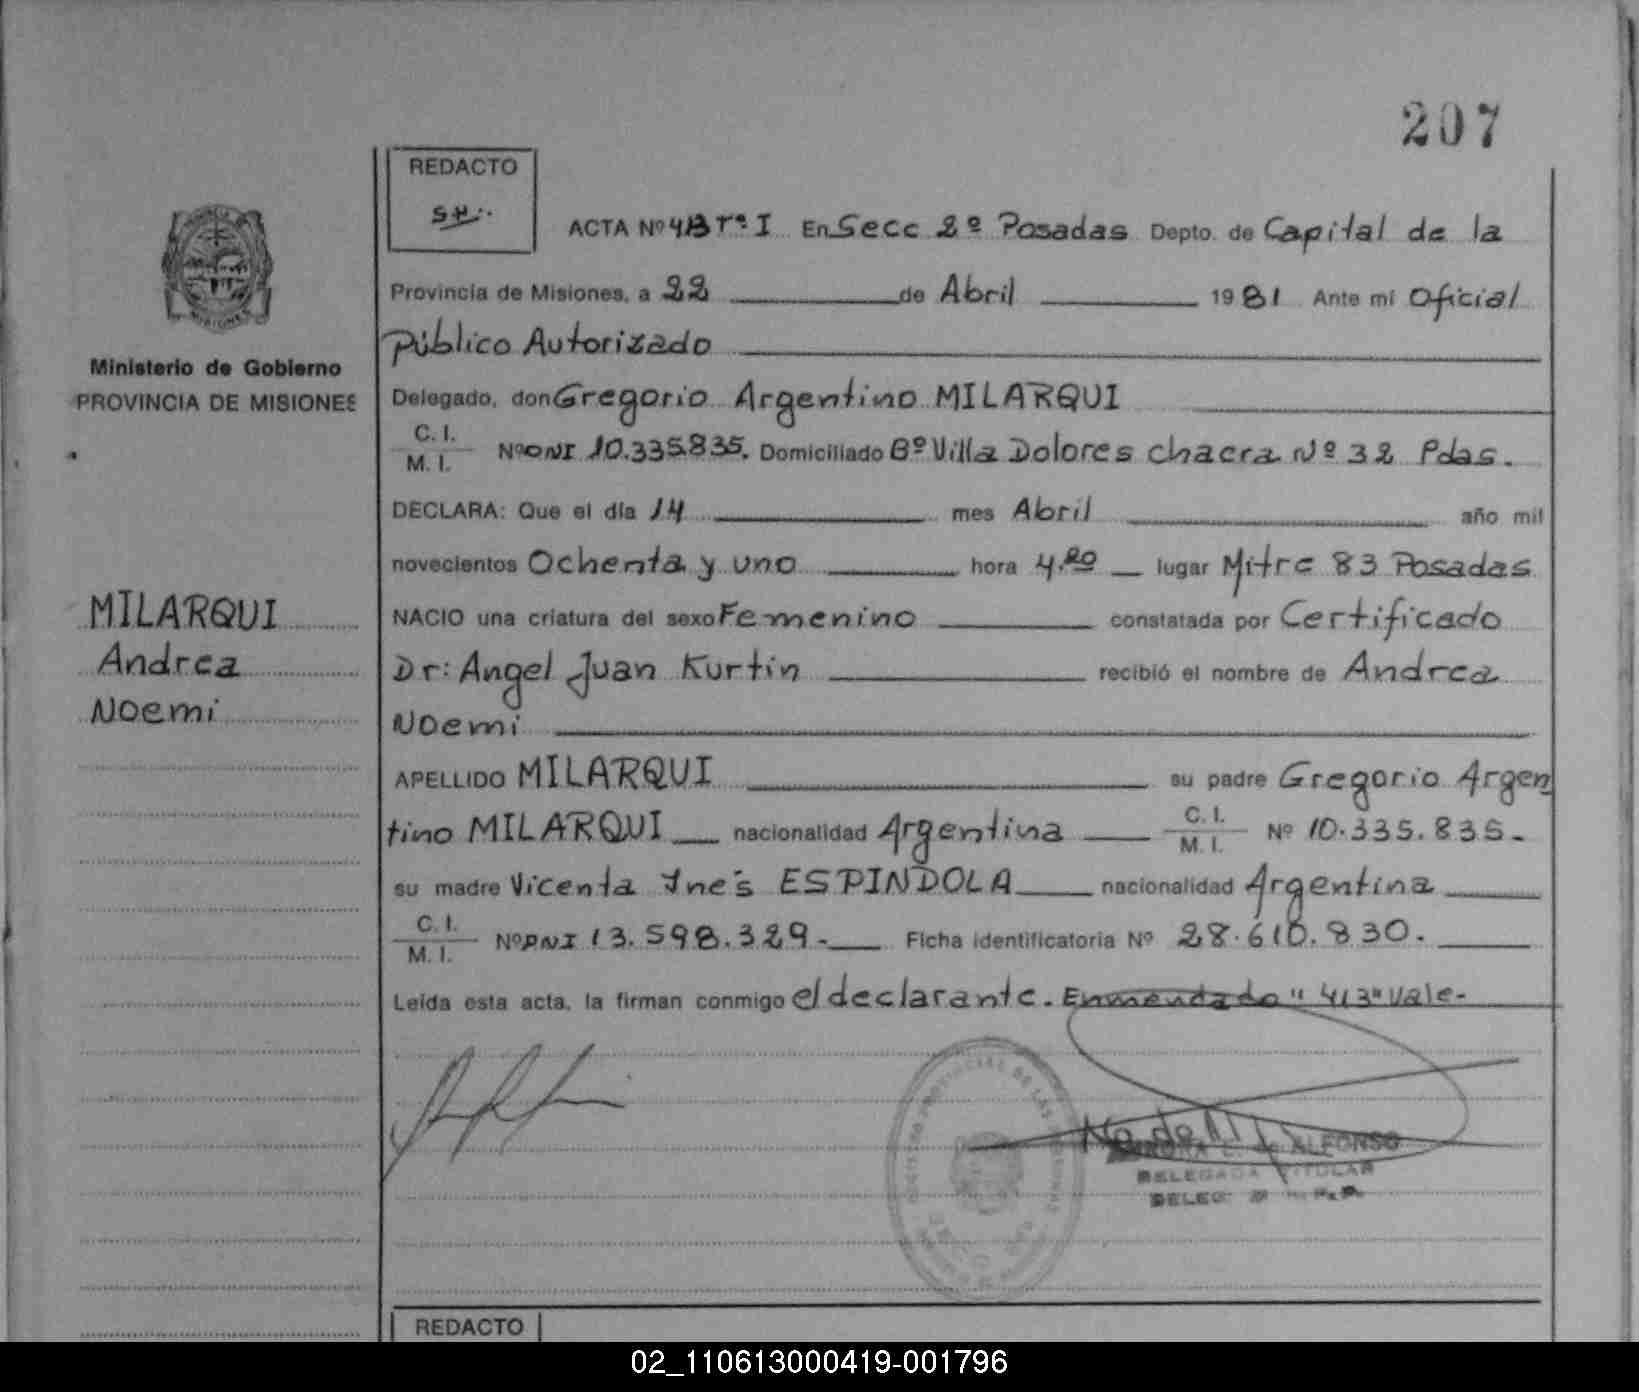 207
REDACTO
ACTA Nº 413 Tº I En Secc 2º Posadas Depto. de Capital de la
Provincia de Misiones, a 22 de Abril 1981 Ante mi Oficial
Público Autorizado
Ministerio de Gobierno
PROVINCIA DE MISIONES
Delegado, don Gregorio Argentino MILARQUI
C. I.
M. I. Nº DNI 10.335.835. Domiciliado Bº Villa Dolores chacra Nº 32 Pdas.
DECLARA: Que el día 14 mes Abril año mil
novecientos Ochenta y uno hora 4.20 lugar Mitre 83 Posadas
MILARQUI
Andrea
Noemi
NACIO una criatura del sexo Femenino constatada por Certificado
Dr: Angel Juan Kurtin recibió el nombre de Andrea
Noemi
APELLIDO MILARQUI su padre Gregorio Argen
tino MILARQUI nacionalidad Argentina C. I. M. I. Nº 10.335.835.-
su madre Vicenta Inés ESPINDOLA nacionalidad Argentina
C. I.
M. I. Nº DNI 13.598.329.- Ficha identificatoria Nº 28.610.830.
Leída esta acta, la firman conmigo el declarante. Enmendado "413" Vale-
C. de ALFONSO
DELEGADA TITULAR
REDACTO
02_110613000419-001796